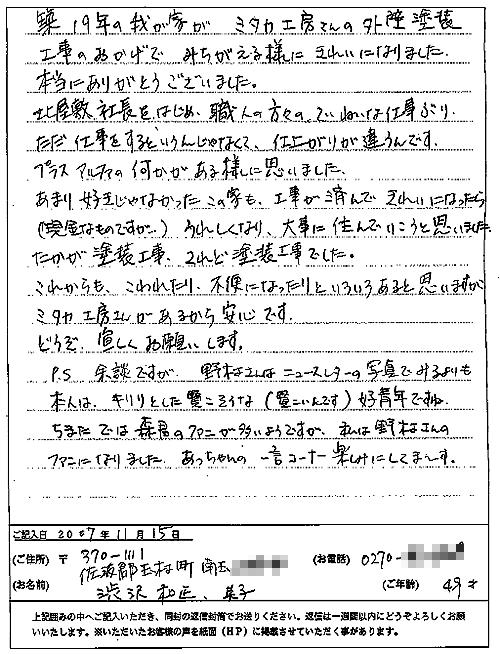 築19年の我が家が ミタカ工房さんの外壁塗装
工事のおかげで みちがえる様に きれいになりました。
本当にありがとうございました。
北屋敷社長をはじめ、職人の方々の、ていねいな仕事ぶり、
ただ仕事をするというんじゃなくて、仕上がりが違うんです。
プラスアルファの何かがある様に思いました。
あまり好きじゃなかったこの家も、工事が済んできれいになったら
(現金なものですが…) うれしくなり、大事に住んでいこうと思いました。
たかが塗装工事、されど塗装工事でした。
これからも、こわれたり、不便になったりといろいろあると思いますが
ミタカ工房さんがあるから安心です。
どうぞ、宜しくお願いします。
P.S 余談ですが、野村さんは ニュースレターの写真でみるよりも
本人は、キリリとした賢こそうな (賢こいんです) 好青年ですね。
ちまたでは森君のファンが多いようですが、私は野村さんの
ファンになりました。あっちゃんの一言コーナー楽しみにしてま〜す。
ご記入日 2007年11月15日
(ご住所) 〒 370-1111
佐波郡玉村町 南玉
(お電話) 0270-
(お名前) 渋沢 和正、美子
(ご年齢) 49才
上記囲みの中へご記入いただき、同封の返信封筒でお送りください。返信は一週間以内にどうぞよろしくお願
いいたします。※いただいたお客様の声を紙面(HP)に掲載させていただく事があります。